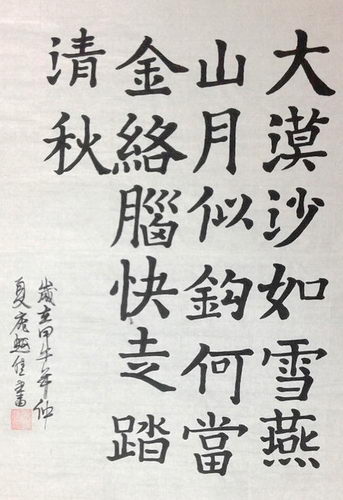 大漠沙如雪燕
山月似鈎何當
金絡腦快走踏
清秋
歲在甲午年仲
夏唐